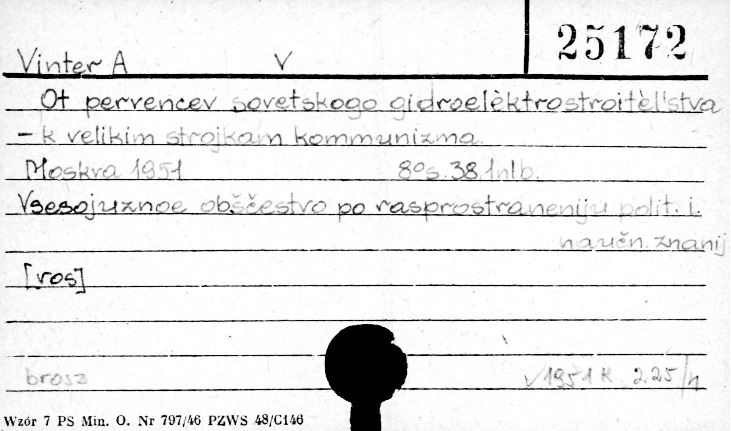 25172
Vinter A V
Ot pervencev sovetskogo gidroelèktrostroitèl'stva
- k velikim strojkam kommunizma.
Moskva 1951 8° s. 38.1nlb.
Vsesojuznoe obščestvo po rasprostraneniju polit. i.
naučn. znanij
[ros]
brosz v 1951 K 2.25/n
Wzór 7 PS Min. O. Nr 797/46 PZWS 48/C146